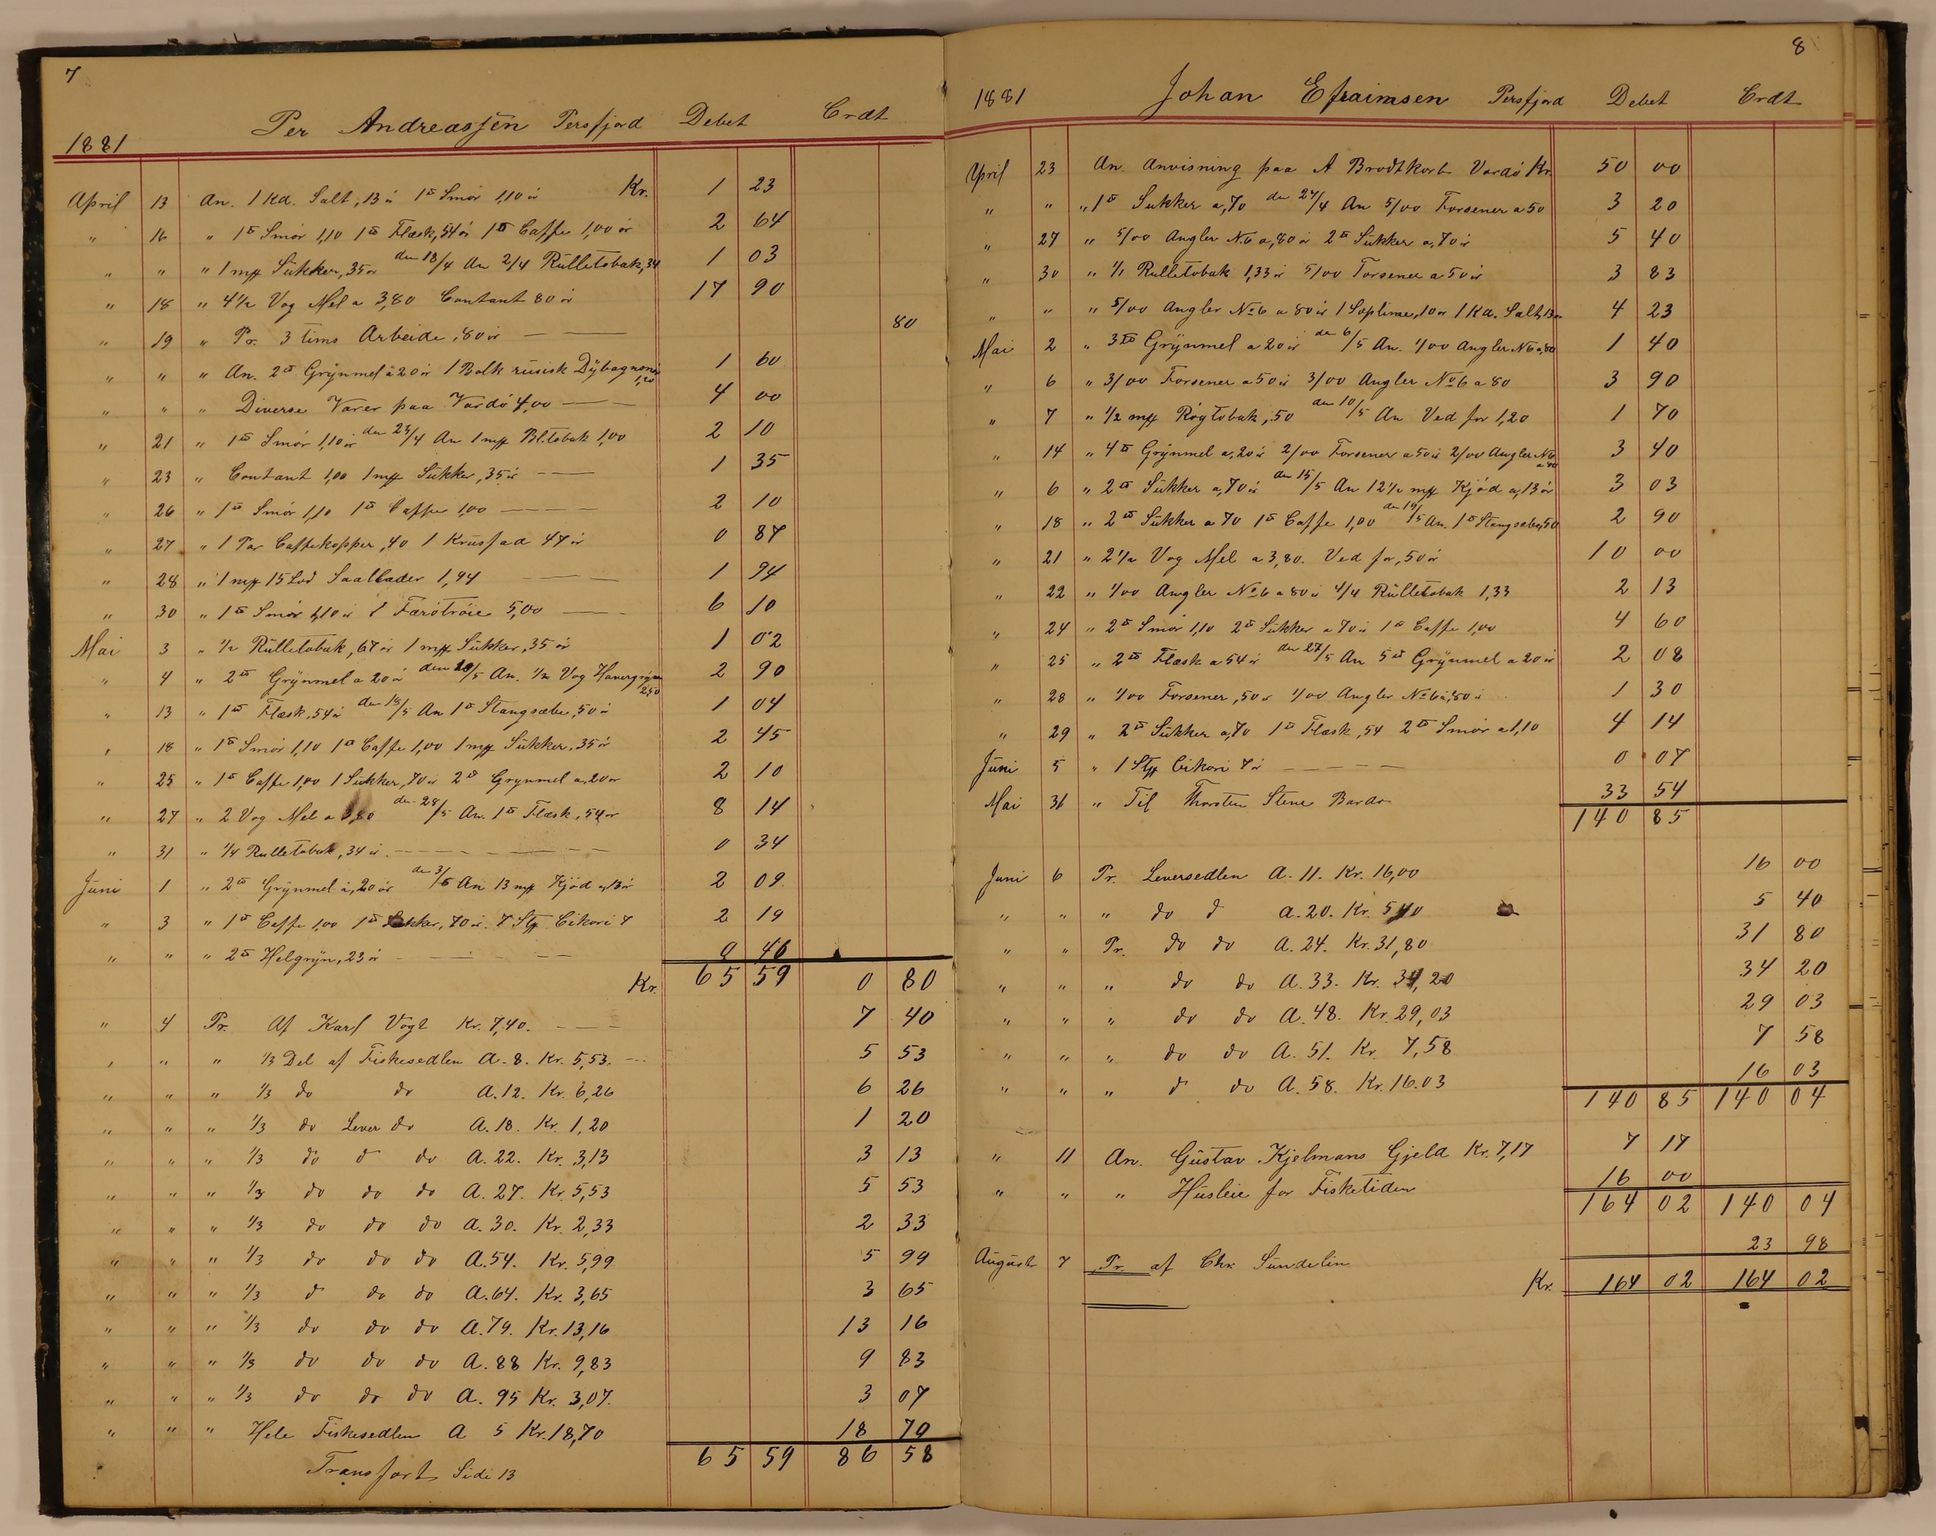 7
1881 Per Andreassen Persfjord Debet Crdt
April 13 An. 1 Kd. Salt, 13 ör 1 ℔ Smör 1,10 ör Kr. 1 23
" 16 " 1 ℔ Smör 1,10 1 ℔ Flæsk, 54 ör 1 ℔ Caffe 1,00 ör 2 64
" " " 1 mk Sukker, 35 ör den 18/4 An 2/4 Rulletobak, 34 1 03
" 18 " 4 1/2 Vog Mel a 3,80 Contant 80 ör 17 90
" 19 " Pr. 3 tims Arbeide, 80 ör 80
" " " An. 2 ℔ Grynmel a 20 ör 1 Balk rusisk 1 60
" " " Diverse Varer paa Vardö 4,00 4 00
" 21 " 1 ℔ Smör 1,10 ör den 23/4 An 1 mk Bl.tobak 1,00 2 10
" 23 " Contant 1,00 1 mk Sukker, 35 ör 1 35
" 26 " 1 ℔ Smör 1,10 1 ℔ Caffe 1,00 2 10
" 27 " 1 Par Caffekopper, 40 1 Krusfad 47 ör 0 87
" 28 " 1 mk 15 Lod Saallæder 1,94 1 94
" 30 " 1 ℔ Smör 1,10 ör 1 Færötröie 5,00 6 10
Mai 3 " 1/2 Rulletobak, 67 ör 1 mk Sukker, 35 ör 1 02
" 4 " 2 ℔ Grynmel a 20 ör den /5 An. 1/2 Vog Havregryn 2,50 2 90
" 13 " 1 ℔ Flæsk, 54 ör den 15/5 An 1 ℔ Stangsæbe, 50 ör 1 04
" 18 " 1 ℔ Smör 1,10 1 ℔ Caffe 1,00 1 mk Sukker, 35 ör 2 45
" 25 " 1 ℔ Caffe 1,00 1 Sukker, 70 ör 2 ℔ Grynmel a 20 ör 2 10
" 27 " 2 Vog Mel a 3,80 den 28/5 An. 1 ℔ Flæsk, 54 ör 8 14
" 31 " 1/4 Rulletobak, 34 ör 0 34
Juni 1 " 2 ℔ Grynmel a, 20 ör den 3/6 An 13 mk Kjöd a, 13 ör 2 09
" 3 " 1 ℔ Caffe 1,00 1 ℔ Sukker, 70 ör. 7 Stk Cikori 7 2 19
" " " 2 ℔ Helgryn, 23 ör 0 46
Kr. 65 59 0 80
" 4 Pr. Af Karl Vogt Kr. 7,40. 7 40
" " " 1/3 Del af Fiskesedlen A. 8. Kr. 5,53. 5 53
" " " 1/3 do do A. 12. Kr. 6,26 6 26
" " " 1/3 do Lever do A. 18. Kr. 1,20 1 20
" " " 1/3 do d do A. 22. Kr. 3,13 3 13
" " " 1/3 do do do A. 27. Kr. 5,53 5 53
" " " 1/3 do do do A. 30. Kr. 2,33 2 33
" " " 1/3 do do do A. 54. Kr. 5,99 5 99
" " " 1/3 d do do A. 64. Kr. 3,65 3 65
" " " 1/3 do do do A. 79. Kr. 13,16 13 16
" " " 1/3 do do do A. 88 Kr. 9,83 9 83
" " " 1/3 do do do A. 95 Kr. 3,07. 3 07
" " " Hele Fiskesedlen A 5 Kr. 18,70 18 70
65 59 86 58
Transport Side 13
8
1881 Johan Efraimsen Persfjord Debet Crdt
April 23 An. Anvisning paa A Brodtkorb Vardö Kr. 50 00
" " " 1 ℔ Sukker a, 70 den 24/4 An 5/00 Forsener a 50 3 20
" 27 " 5/00 Angler N. 6 a, 80 ör 2 ℔ Sukker a, 70 ör 5 40
" 30 " 1/1 Rulletobak 1,33 ör 5/00 Forsener a 50 ör 3 83
" " " 5/00 Angler No 6 a 80 ör 1 Soplime, 10 ör 1 Kd. Salt, 13 ör 4 23
Mai 2 " 3 ℔ Grynmel a 20 ör den 6/5 An. 1/00 Angler N 6 a, 80 1 40
" 6 " 3/00 Forsener a 50 ör 3/00 Angler No 6 a 80 3 90
" 7 " 1/2 mk Røgtobak, 50 den 10/5 An Ved for 1,20 1 70
" 14 " 4 ℔ Grynmel a, 20 ör 2/00 Forsener a 50 ör 2/00 Angler N 6 a 80 3 40
" 6 " 2 ℔ Sukker a, 70 ör den 15/5 An 12 1/2 mk Kjöd a, 13 ör 3 03
" 18 " 2 ℔ Sukker a 70 1 ℔ Caffe 1,00 den 19/5 An. 1 ℔ Stangsæbe, 50 2 90
" 21 " 2 1/2 Vog Mel a 3,80. Ved for, 50 ör 10 00
" 22 " 1/00 Angler No 6 a 80 ör 4/4 Rulletobak 1,33 2 13
" 24 " 2 ℔ Smör 1,10 2 ℔ Sukker a 70 ör 1 ℔ Caffe 1,00 4 60
" 25 " 2 ℔ Flæsk a 54 ör den 27/5 An 5 ℔ Grynmel a 20 ör 2 08
" 28 " 1/00 Forsener, 50 ör 1/00 Angler No 6 a, 80 ör 1 30
" 29 " 2 ℔ Sukker a, 70 1 ℔ Flæsk, 54 2 ℔ Smör a 1,10 4 14
Juni 5 " 1 Stk Cikori 7 ör 0 07
Mai 31 " Til Thorsten Stene Bardo 33 54
140 85
Juni 6 Pr. Leversedlen A. 11. Kr. 16,00 16 00
" " " do d A. 20. Kr. 5,40 5 40
" " Pr. do do A. 24. Kr. 31,80 31 80
" " " do do A. 33. Kr. 34,20 34 20
" " " do do A. 48. Kr. 29,03 29 03
" " " do do A. 51. Kr. 7,58 7 58
" " " d do A. 58. Kr. 16.03 16 03
140 85 140 04
" 11 An. Gustav Kjelmans Gjeld Kr. 7,17 7 17
" " " Husleie for Fisketiden 16 00
164 02 140 04
August 7 Pr. af Chr Sundelin 23 98
Kr. 164 02 164 02